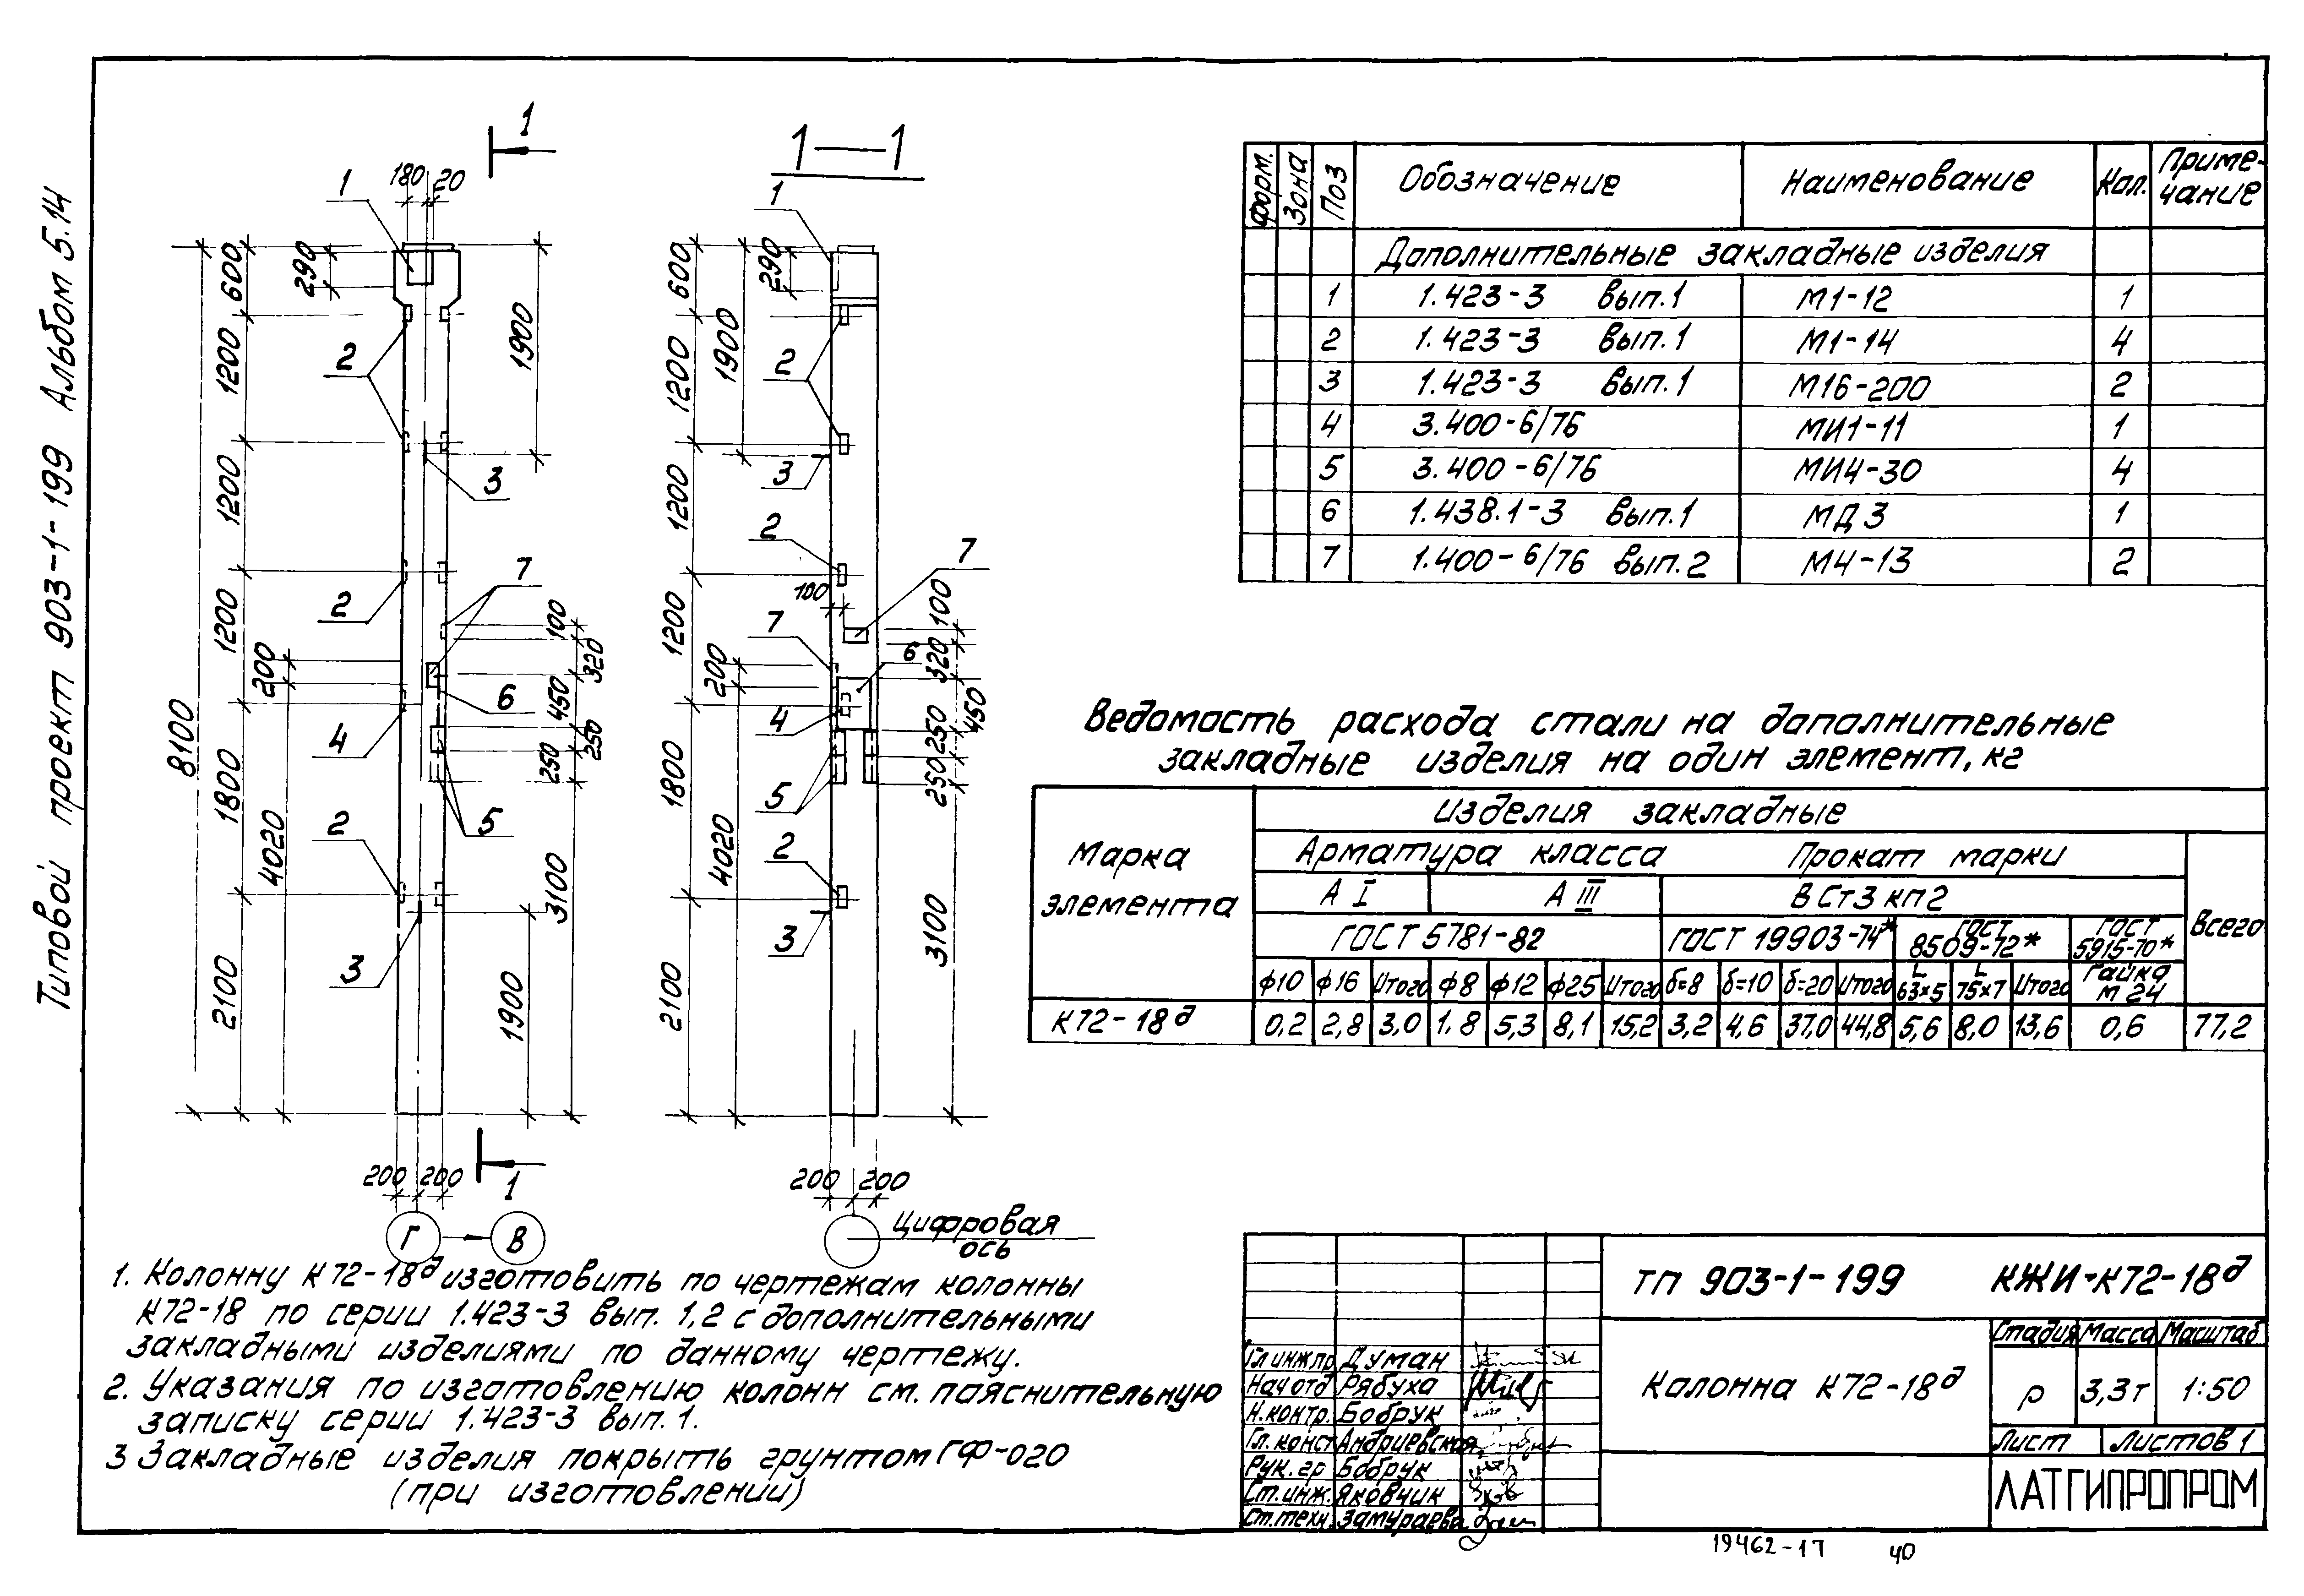 Типовой проект 903-1-199 Альбом 5.14
1
1
180 20
290
600
1200
1200
1200
1800
2100
8100
200
4020
1900
2
3
2
7
6
4
5
2
3
100
320
450
250
250
3100
1900
200 200
1
Г
В
1—1
1
290
600
1900
1200
2
3
1200
2
7
100
100
1200
7
200
6
320
450
4
250
250
5
1800
4020
2
3
3100
2100
200 200
Цифровая
ось
Форм. Зона Поз Обозначение Наименование Кол. Приме-
чание
Дополнительные закладные изделия
1 1.423-3 вып.1 М1-12 1
2 1.423-3 вып.1 М1-14 4
3 1.423-3 вып.1 М16-200 2
4 3.400-6/76 МИ1-11 1
5 3.400-6/76 МИ4-30 4
6 1.438.1-3 вып.1 МД3 1
7 1.400-6/76 вып.2 М4-13 2
Ведомость расхода стали на дополнительные
закладные изделия на один элемент, кг
Марка
элемента
Изделия закладные
Арматура класса Прокат марки
А I А III В Ст3 кп2
ГОСТ 5781-82 ГОСТ 19903-74* ГОСТ
8509-72* ГОСТ
5915-70* Всего
ф10 ф16 Итого ф8 ф12 ф25 Итого δ=8 δ=10 δ=20 Итого L
63х5 L
75х7 Итого Гайка
М 24
К72-18д 0,2 2,8 3,0 1,8 5,3 8,1 15,2 3,2 4,6 37,0 44,8 5,6 8,0 13,6 0,6 77,2
1. Колонну К72-18д изготовить по чертежам колонны
К72-18 по серии 1.423-3 вып. 1,2 с дополнительными
закладными изделиями по данному чертежу.
2. Указания по изготовлению колонн см. пояснительную
записку серии 1.423-3 вып. 1.
3 Закладные изделия покрыть грунтом ГФ-020
(при изготовлении)
ТП 903-1-199 КЖИ-К72-18д
Гл инж пр Думан
Нач отд Рябуха
Н.контр. Бобрук
Гл. конст Андриевская
Рук. гр Бобрук
Ст.инж. Яковчик
Ст.техн. Замураева
Колонна К72-18д
Стадия Масса Масштаб
Р 3,3т 1:50
Лист Листов 1
ЛАТГИПРОПРОМ
19462-17 40